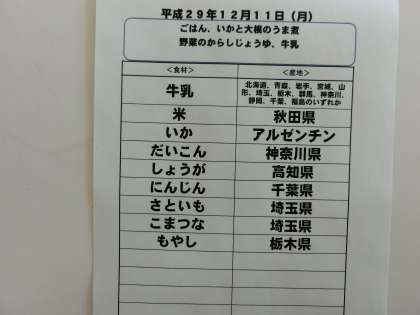 平成29年12月11日（月）
ごはん、いかと大根のうま煮
野菜のからしじょうゆ、牛乳
＜食材＞ ＜産地＞
牛乳 北海道、青森、岩手、宮城、山
形、埼玉、栃木、群馬、神奈川、
静岡、千葉、福島のいずれか
米 秋田県
いか アルゼンチン
だいこん 神奈川県
しょうが 高知県
にんじん 千葉県
さといも 埼玉県
こまつな 埼玉県
もやし 栃木県